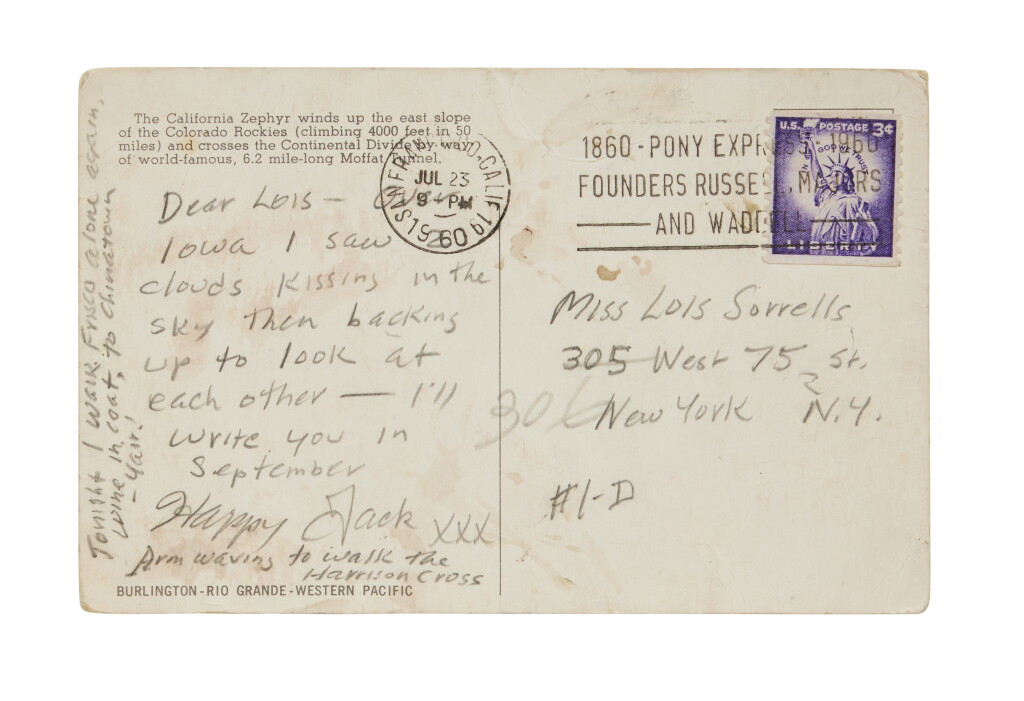 The California Zephyr winds up the east slope
of the Colorado Rockies (climbing 4000 feet in 50
miles) and crosses the Continental Divide by way
of world-famous, 6.2 mile-long Moffat Tunnel.
Dear Lois — Over
Iowa I saw 2
clouds kissing in the
sky then backing
up to look at
each other — I'll
write you in
September
Happy Jack XXX
Arm waving to walk the
Harrison Cross
BURLINGTON-RIO GRANDE-WESTERN PACIFIC
Tonight I walk Frisco alone again,
wine in coat, to Chinatown
— Yair!
SAN FRANCISCO, CALIF. 19
JUL 23
9 - PM
1960
1860 - PONY EXPRESS - 1960
FOUNDERS RUSSELL, MAJORS
AND WADDELL
U.S. POSTAGE 3¢
IN GOD WE TRUST
LIBERTY
Miss Lois Sorrells
305 West 75 St.
New York 2 N.Y.
306
#1-D